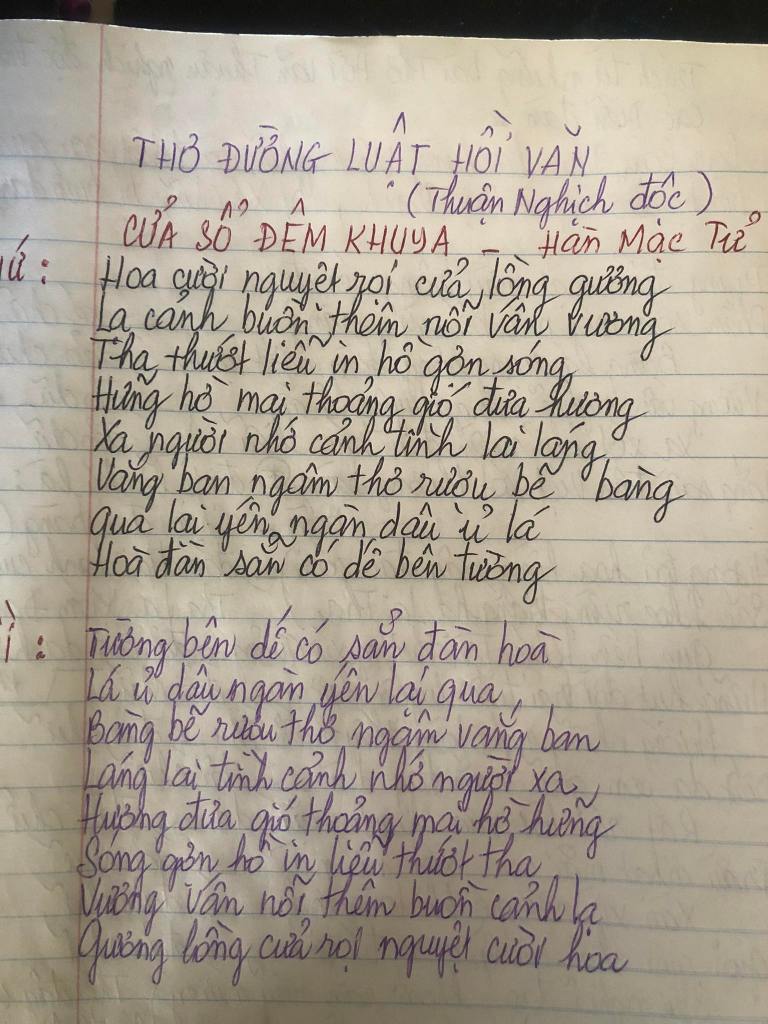 THƠ ĐƯỜNG LUẬT HỒI VĂN
(Thuận Nghịch đốc)
CỬA SỔ ĐÊM KHUYA - Hàn Mạc Tử
ứ :
Hoa cười nguyệt rọi cửa lồng gương
Lạ cảnh buồn thêm nỗi vấn vương
Tha thướt liễu in hồ gợn sóng
Hững hờ mai thoảng gió đưa hương
Xa người nhớ cảnh tình lai láng
Vắng bạn ngâm thơ rượu bẽ bàng
qua lại yến ngàn dâu ủ lá
Hoà đàn sẵn có dế bên tường
ì :
Tường bên dế có sẵn đàn hoà
Lá ủ dâu ngàn yến lại qua
Bàng bẽ rượu thơ ngâm vắng bạn
Láng lai tình cảnh nhớ người xa
Hương đưa gió thoảng mai hờ hững
Sóng gợn hồ in liễu thướt tha
Vương vấn nỗi thêm buồn cảnh lạ
Gương lồng cửa rọi nguyệt cười hoa